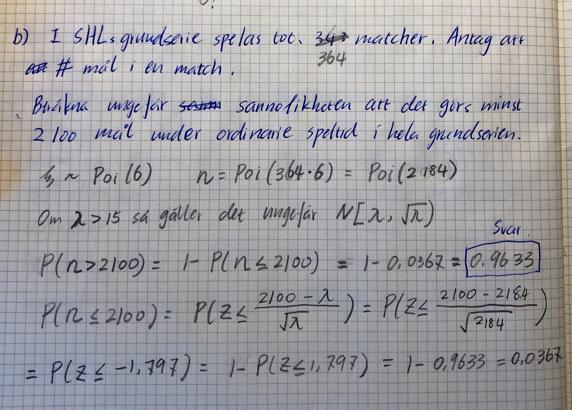 b) I SHL:s grundserie spelas tot. matcher. Antag att
364
# mål i en match.
Beräkna ungefär sannolikheten att det görs minst
2100 mål under ordinarie speltid i hela grundserien.
ξ ~ Poi(6) n = Poi(364·6) = Poi(2184)
Om λ>15 så gäller det ungefär N[λ, √λ)
Svar.
P(n>2100) = 1-P(n≤2100) = 1-0,0367 = 0.9633
P(n≤2100) = P(Z≤ (2100-λ)/√λ) = P(Z≤ (2100-2184)/√2184)
= P(Z≤-1,797) = 1-P(Z≤1,797) = 1-0,9633 = 0,0367